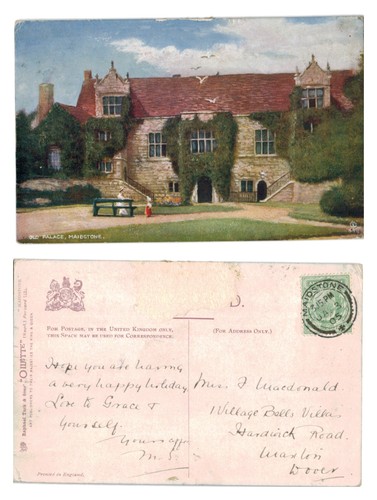 OLD PALACE, MAIDSTONE.
FOR POSTAGE, IN THE UNITED KINGDOM ONLY,
THIS SPACE MAY BE USED FOR CORRESPONDENCE.
(FOR ADDRESS ONLY.)
MAIDSTONE
PM
Raphael Tuck & Sons' "OILETTE"
Hope you are having
a very happy holiday
Love to Grace &
yourself.
Yours affec
Miss F Macdonald
1 Village Bells Villas
Hardwick Road.
Maxton
Dover
Printed in England.